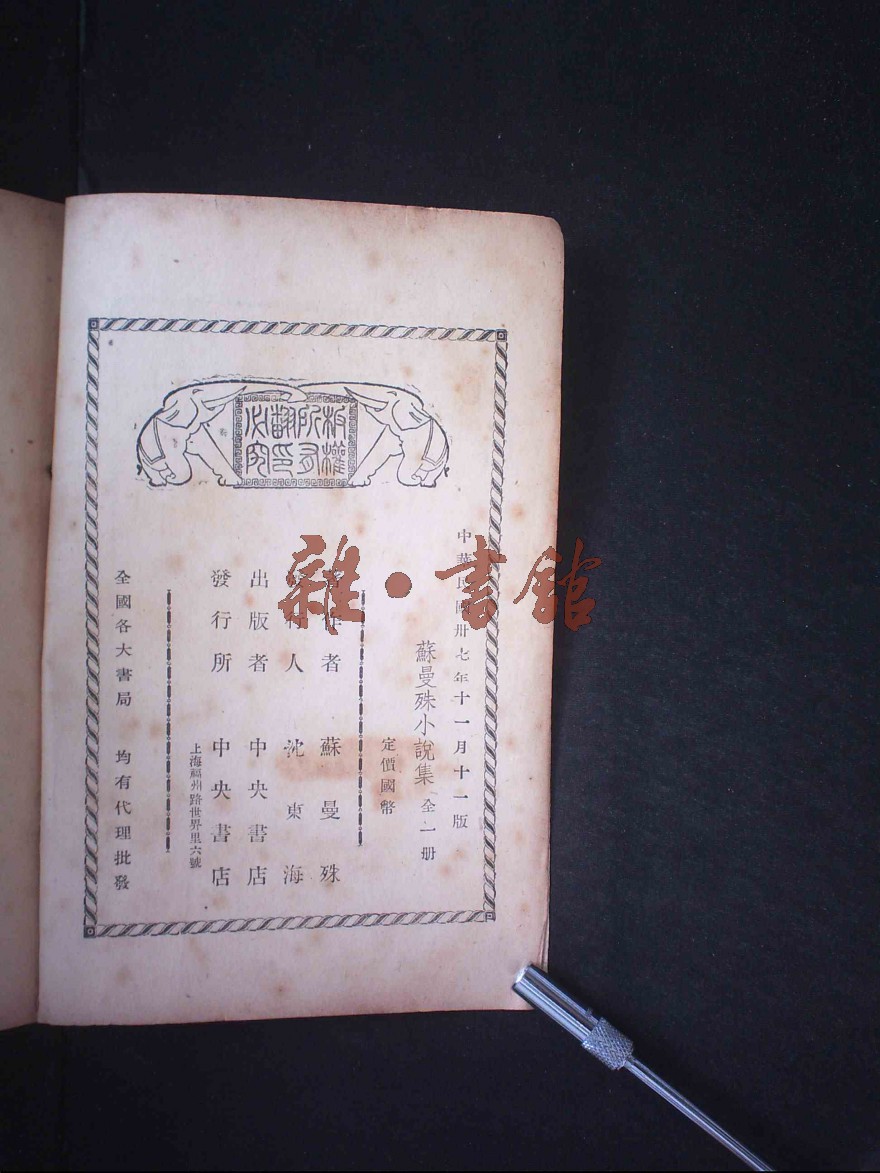 板權所有翻印必究
中華民國卅七年十一月十一版
蘇曼殊小說集 全一册
定價國幣
著作者 蘇曼殊
發行人 沈東海
出版者 中央書店
發行所 中央書店
上海福州路世界里六號
全國各大書局 均有代理批發
雜·書館